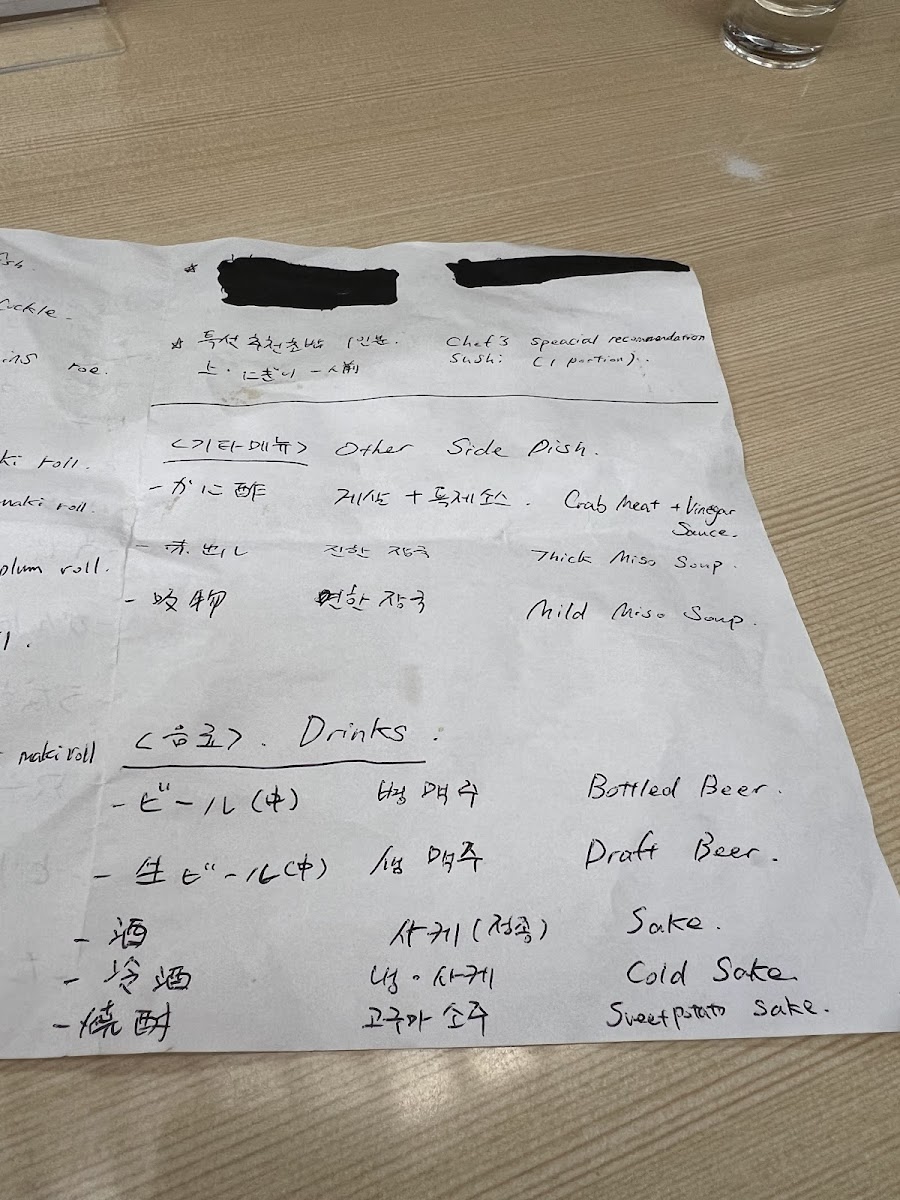 ish.
Cuckle.
ins roe.
ki roll.
maki roll.
plum roll.
maki roll
☆
☆ 특선 추천초밥 1인분. Chef's speacial recomendation
上・にぎり 一人前 Sushi (1 portion)..
<기타메뉴> Other Side Dish.
- かに酢 게살 + 특제소스. Crab Meat + Vinegar
Sauce.
- 赤出し 진한 장국 Thick Miso Soup.
- 吸物 연한 장국 Mild Miso Soup.
<음료>. Drinks.
- ビール(中) 병 맥주 Bottled Beer.
- 生ビール(中) 생 맥주 Draft Beer.
- 酒 사케(정종) Sake.
- 冷酒 냉・사케 Cold Sake.
- 焼酎 고구마 소주 Sweetpotato sake.